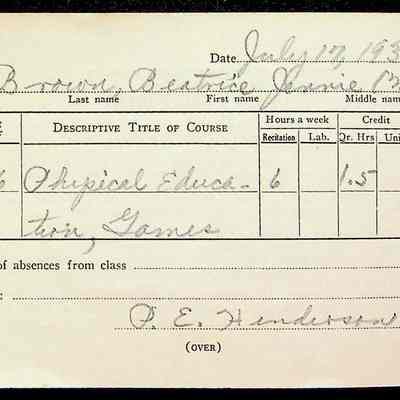 Date July 17, 193
Brown, Beatrice Jennie
Last name First name Middle nam
DESCRIPTIVE TITLE OF COURSE Hours a week Credit
Recitation Lab. Qr. Hrs Uni
6 Physical Educa- 6 1.5
tion, Games
of absences from class
:
P. E. Henderson
(OVER)